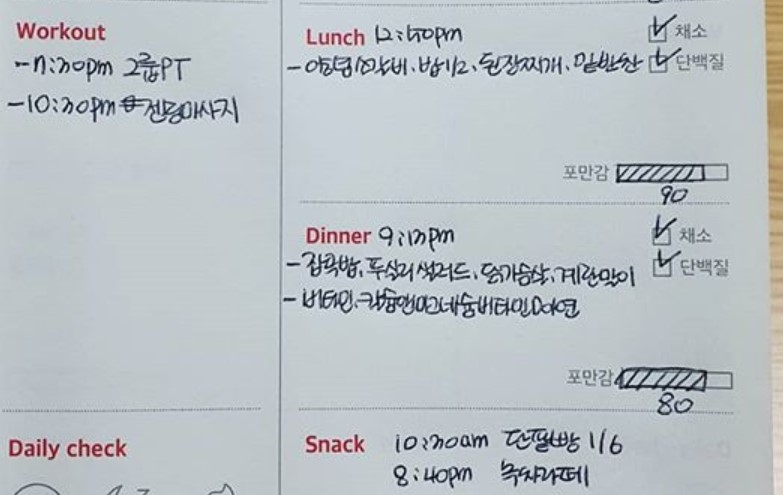 Workout
-7:30pm 2:1룹PT
-10:30pm 전신마사지
Lunch 12:40pm
채소
-양념소갈비, 밥1/2, 된장찌개, 밑반찬
단백질
포만감
90
Dinner 9:13pm
채소
-잡곡밥, 푸실리샐러드, 닭가슴살, 계란말이
단백질
-비타민, 칼슘앤마그네슘비타민D아연
포만감
80
Daily check
Snack 10:30am 단팥빵 1/6
8:40pm 녹차라떼